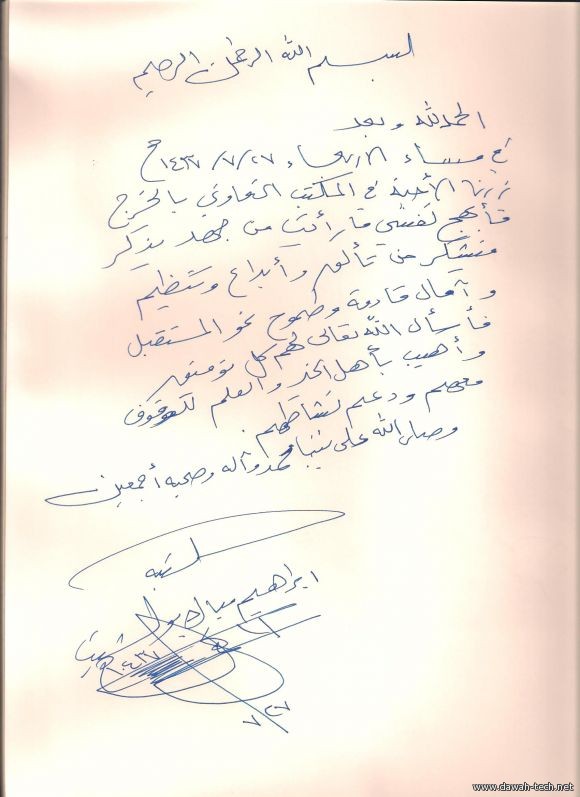 بسم الله الرحمن الرحيم
الحمد لله وبعد
في مساء الاربعاء ١٤٣٧/٧/٢٧ ح
زرنا الأحبة في المكتب التعاوني بالخرج
فأبهج نفسي ما رأيت من جهد يذكر
فيشكر من تألق وأبداع وتنظيم
وآمال قادمة وطموح نحو المستقبل
فأسأل الله تعالى لهم كل توفيق
وأهيب بأهل الخير والعلم للوقوف
معهم ودعم نشاطهم.
وصلى الله على نبينا محمد وآله وصحبه أجمعين
كتبه
ابراهيم
٧/٢٧
www.dawah-tech.net